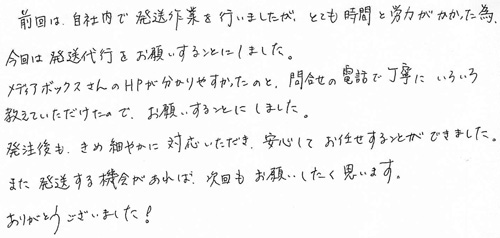 前回は、自社内で発送作業を行いましたが、とても時間と労力がかかった為、
今回は発送代行をお願いすることにしました。
メディアボックスさんのHPが分かりやすかったのと、問合せの電話で丁寧にいろいろ
教えていただけたので、お願いすることにしました。
発注後も、きめ細やかに対応いただき、安心してお任せすることができました。
また発送する機会があれば、次回もお願いしたく思います。
ありがとうございました!